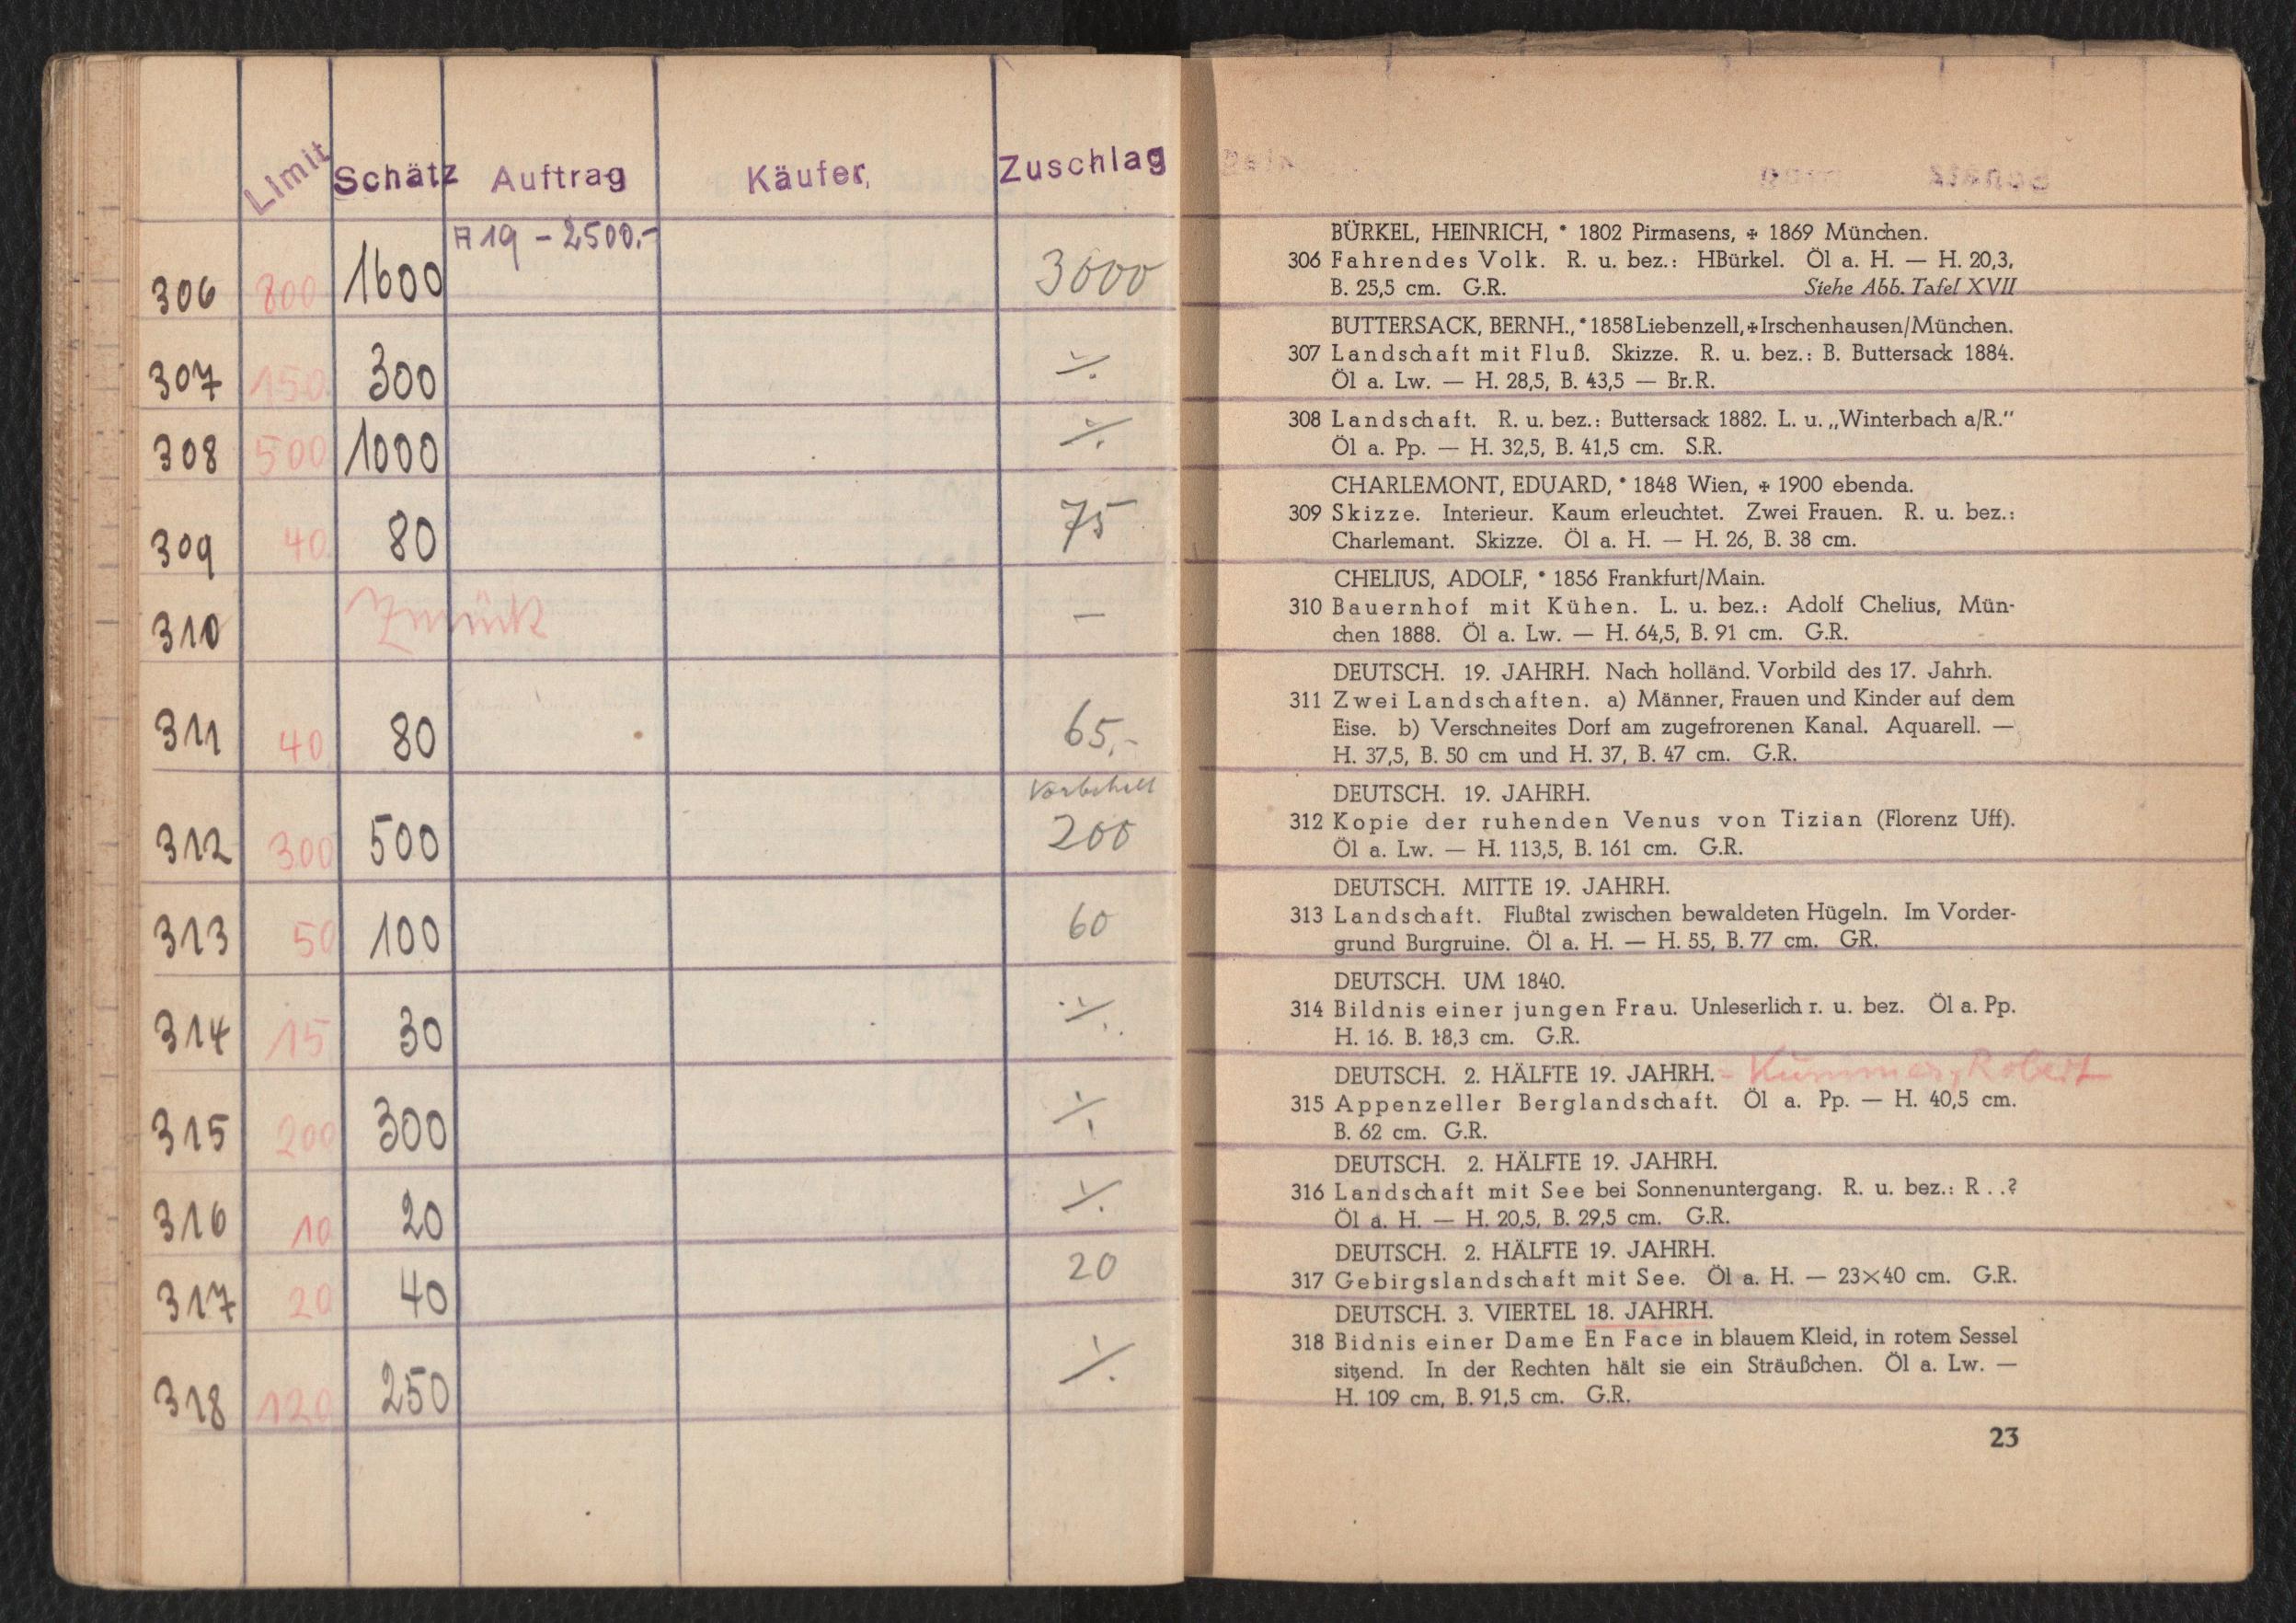 Limit Schätz Auftrag Käufer, Zuschlag
A 19 – 2500.-
306 800 1600 3000
307 150 300 ·/.
308 500 1000 ·/.
309 40 80 75
310 Zurück –
311 40 80 65,-
Vorbehalt
312 300 500 200
313 50 100 60
314 15 30 ·/.
315 200 300 ·/.
316 10 20 ·/.
317 20 40 20
318 120 250 ·/.
BÜRKEL, HEINRICH, * 1802 Pirmasens, ✠ 1869 München.
306 Fahrendes Volk. R. u. bez.: HBürkel. Öl a. H. — H. 20,3,
B. 25,5 cm. G.R. Siehe Abb. Tafel XVII
BUTTERSACK, BERNH., * 1858 Liebenzell, ✠ Irschenhausen/München.
307 Landschaft mit Fluß. Skizze. R. u. bez.: B. Buttersack 1884.
Öl a. Lw. — H. 28,5, B. 43,5 — Br.R.
308 Landschaft. R. u. bez.: Buttersack 1882. L. u. „Winterbach a/R."
Öl a. Pp. — H. 32,5, B. 41,5 cm. S.R.
CHARLEMONT, EDUARD, * 1848 Wien, ✠ 1900 ebenda.
309 Skizze. Interieur. Kaum erleuchtet. Zwei Frauen. R. u. bez.:
Charlemant. Skizze. Öl a. H. — H. 26, B. 38 cm.
CHELIUS, ADOLF, * 1856 Frankfurt/Main.
310 Bauernhof mit Kühen. L. u. bez.: Adolf Chelius, Mün-
chen 1888. Öl a. Lw. — H. 64,5, B. 91 cm. G.R.
DEUTSCH. 19. JAHRH. Nach holländ. Vorbild des 17. Jahrh.
311 Zwei Landschaften. a) Männer, Frauen und Kinder auf dem
Eise. b) Verschneites Dorf am zugefrorenen Kanal. Aquarell. —
H. 37,5, B. 50 cm und H. 37, B. 47 cm. G.R.
DEUTSCH. 19. JAHRH.
312 Kopie der ruhenden Venus von Tizian (Florenz Uff).
Öl a. Lw. — H. 113,5, B. 161 cm. G.R.
DEUTSCH. MITTE 19. JAHRH.
313 Landschaft. Flußtal zwischen bewaldeten Hügeln. Im Vorder-
grund Burgruine. Öl a. H. — H. 55, B. 77 cm. GR.
DEUTSCH. UM 1840.
314 Bildnis einer jungen Frau. Unleserlich r. u. bez. Öl a. Pp.
H. 16. B. 18,3 cm. G.R.
DEUTSCH. 2. HÄLFTE 19. JAHRH. - Kummer, Robert
315 Appenzeller Berglandschaft. Öl a. Pp. — H. 40,5 cm.
B. 62 cm. G.R.
DEUTSCH. 2. HÄLFTE 19. JAHRH.
316 Landschaft mit See bei Sonnenuntergang. R. u. bez.: R . . ?
Öl a. H. — H. 20,5, B. 29,5 cm. G.R.
DEUTSCH. 2. HÄLFTE 19. JAHRH.
317 Gebirgslandschaft mit See. Öl a. H. — 23×40 cm. G.R.
DEUTSCH. 3. VIERTEL 18. JAHRH.
318 Bidnis einer Dame En Face in blauem Kleid, in rotem Sessel
sitzend. In der Rechten hält sie ein Sträußchen. Öl a. Lw. —
H. 109 cm, B. 91,5 cm. G.R.
23